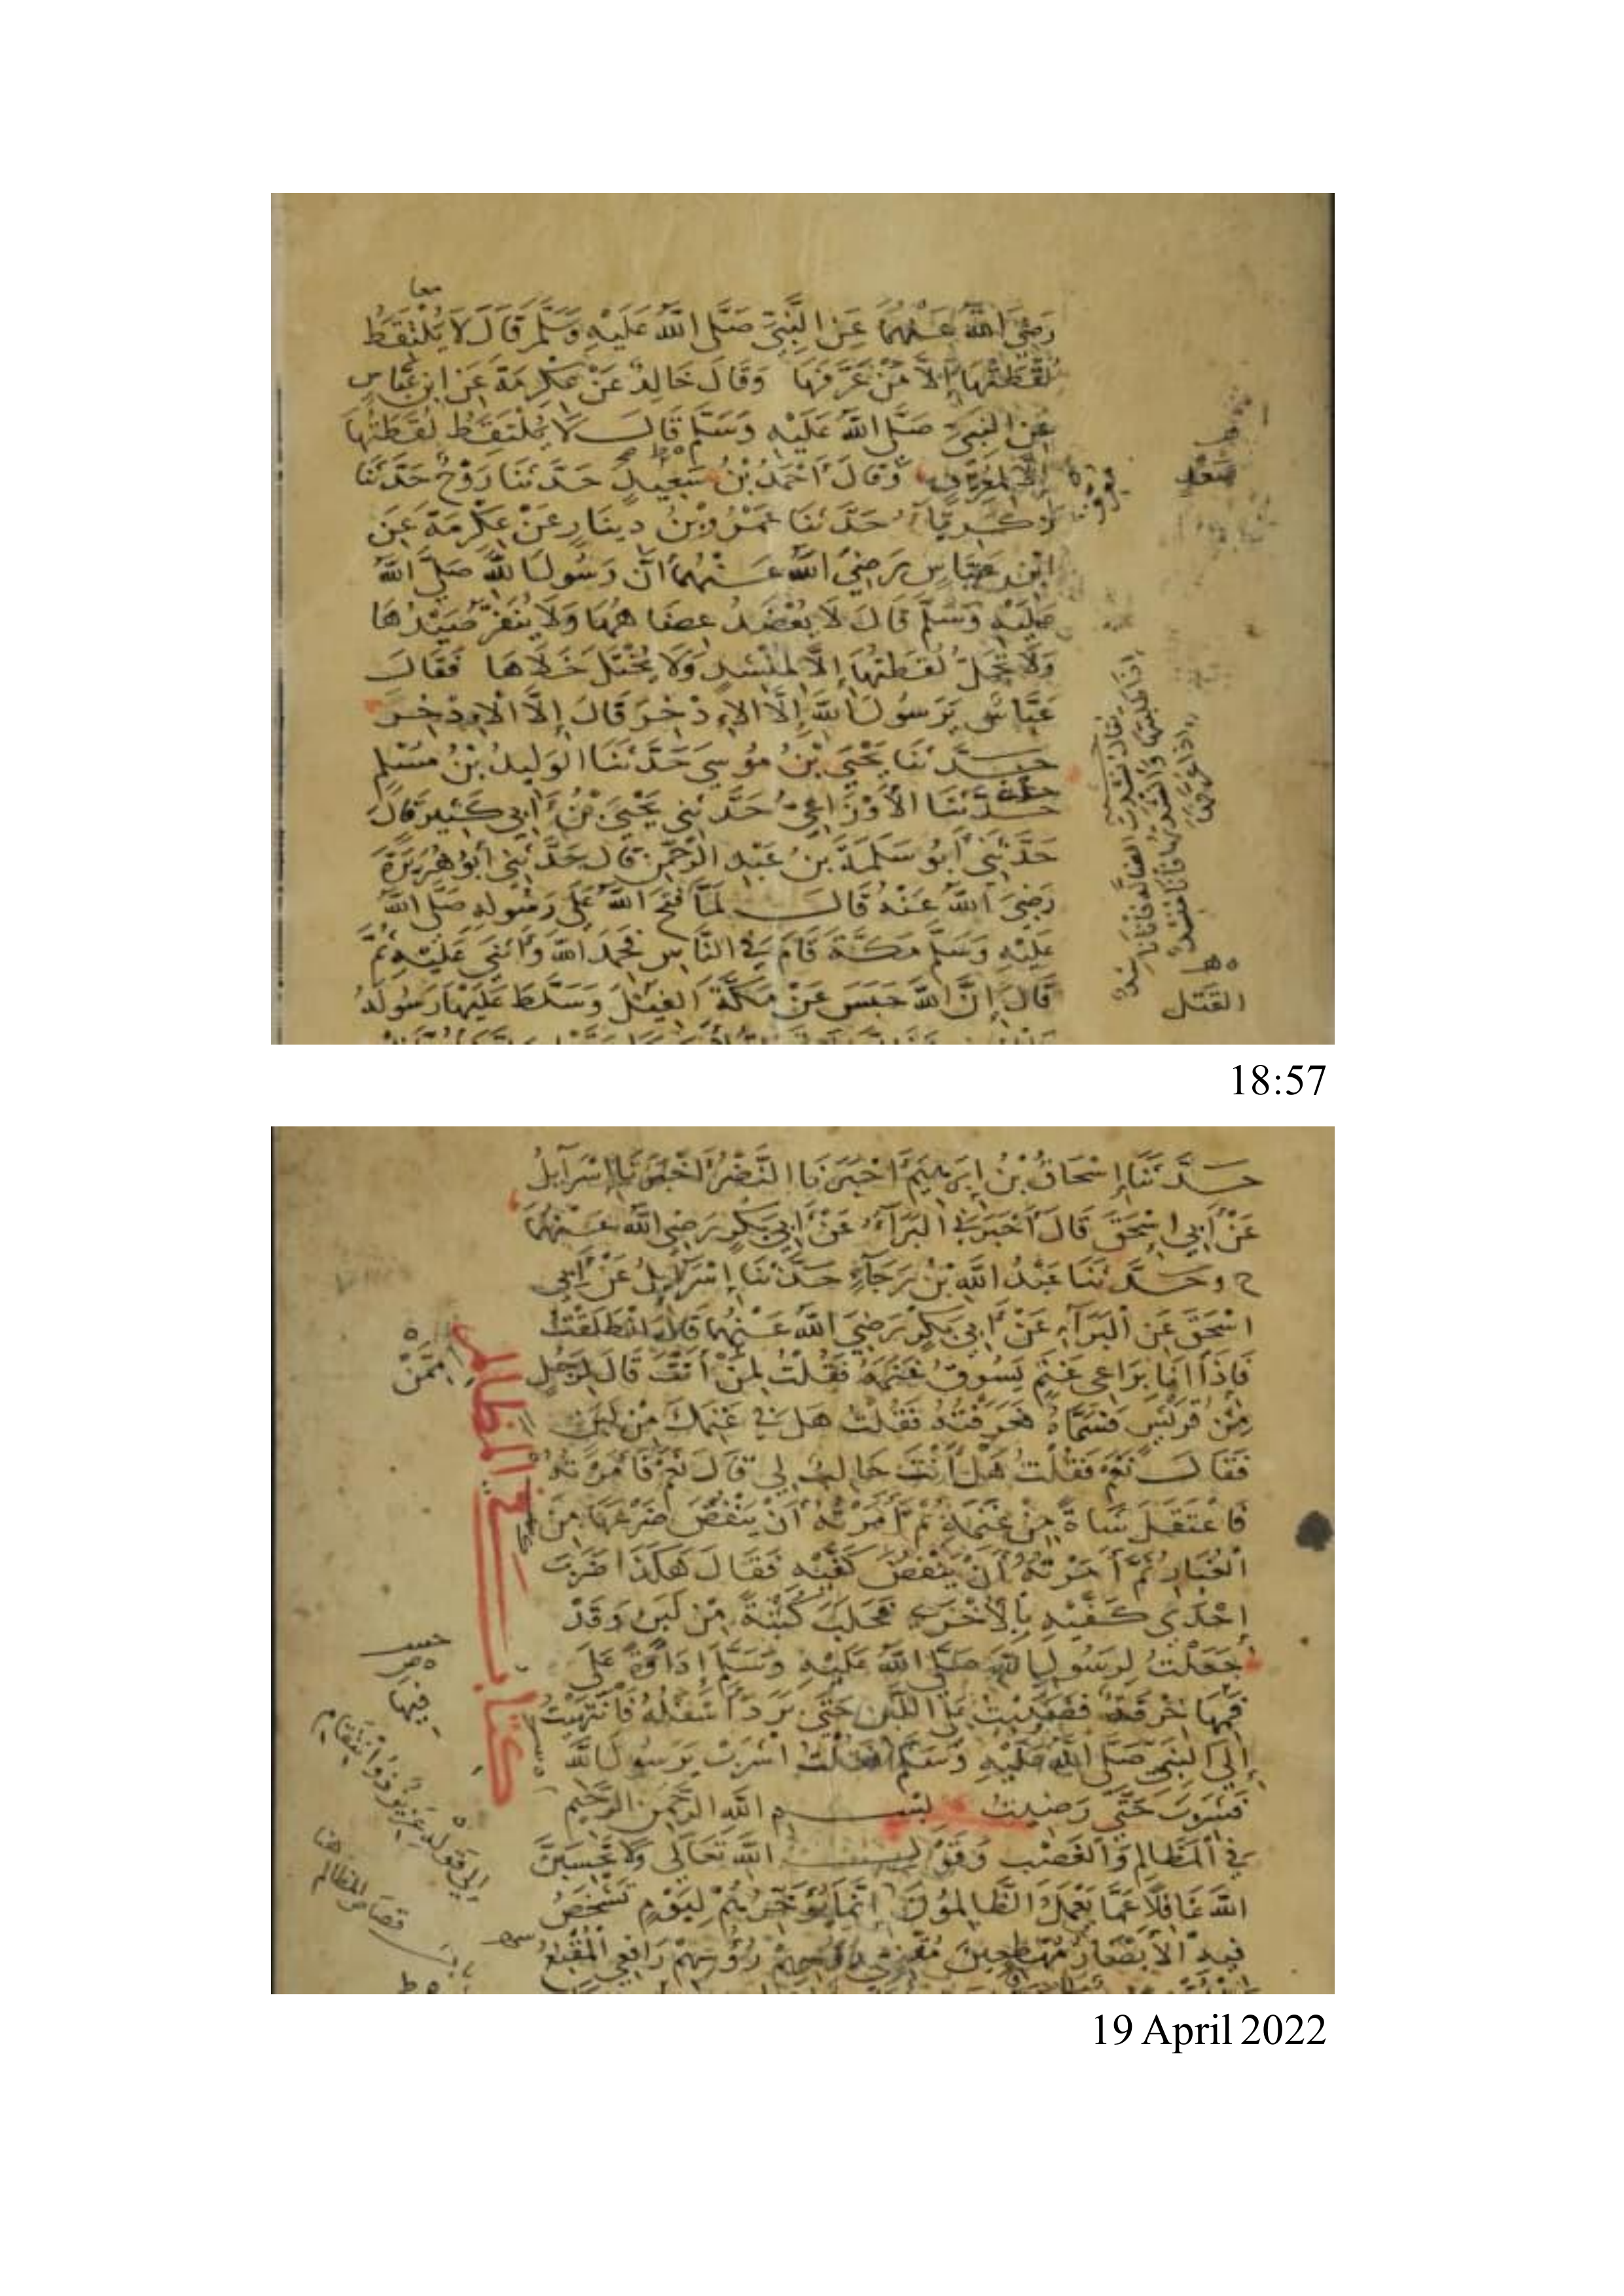 معا
رَضِيَ اللَّهُ عَنْهُمَا عَنِ النَّبِيِّ صَلَّى اللَّهُ عَلَيْهِ وَسَلَّمَ قَالَ لَا يَلْتَقِطُ
لُقَطَتَهَا إِلَّا مَنْ عَرَّفَهَا وَقَالَ خَالِدٌ عَنْ عِكْرِمَةَ عَنِ ابْنِ عَبَّاسٍ
عَنِ النَّبِيِّ صَلَّى اللَّهُ عَلَيْهِ وَسَلَّمَ قَالَ لَا يُلْتَقَطُ لُقَطَتُهَا
إِلَّا لِمُعَرِّفٍ وَقَالَ أَحْمَدُ بْنُ سَعِيدٍ حَدَّثَنَا رَوْحٌ حَدَّثَنَا
زَكَرِيَّاءُ حَدَّثَنَا عَمْرُو بْنُ دِينَارٍ عَنْ عِكْرِمَةَ عَنِ
ابْنِ عَبَّاسٍ رَضِيَ اللَّهُ عَنْهُمَا أَنَّ رَسُولَ اللَّهِ صَلَّى اللَّهُ
عَلَيْهِ وَسَلَّمَ قَالَ لَا يُعْضَدُ عِضَاهُهَا وَلَا يُنَفَّرُ صَيْدُهَا
وَلَا تَحِلُّ لُقَطَتُهَا إِلَّا لِمُنْشِدٍ وَلَا يُخْتَلَى خَلَاهَا فَقَالَ
عَبَّاسٌ يَرَسُولَ اللَّهِ إِلَّا الْإِذْخِرَ قَالَ إِلَّا الْإِذْخِرَ
حَدَّثَنَا يَحْيَى بْنُ مُوسَى حَدَّثَنَا الْوَلِيدُ بْنُ مُسْلِمٍ
حَدَّثَنَا الْأَوْزَاعِيُّ حَدَّثَنِي يَحْيَى بْنُ أَبِي كَثِيرٍ قَالَ
حَدَّثَنِي أَبُو سَلَمَةَ بْنُ عَبْدِ الرَّحْمَنِ قَالَ حَدَّثَنِي أَبُو هُرَيْرَةَ
رَضِيَ اللَّهُ عَنْهُ قَالَ لَمَّا فَتَحَ اللَّهُ عَلَى رَسُولِهِ صَلَّى اللَّهُ
عَلَيْهِ وَسَلَّمَ مَكَّةَ قَامَ فِي النَّاسِ فَحَمِدَ اللَّهَ وَأَثْنَى عَلَيْهِ ثُمَّ
قَالَ إِنَّ اللَّهَ حَبَسَ عَنْ مَكَّةَ الْفِيلَ وَسَلَّطَ عَلَيْهَا رَسُولَهُ
القتل
18:57
حَدَّثَنَا إِسْحَاقُ بْنُ إِبْرَهِيمَ أَخْبَرَنَا النَّضْرُ أَخْبَرَنَا إِسْرَآئِلُ
عَنْ أَبِي إِسْحَقَ قَالَ أَخْبَرَنِي الْبَرَآءُ عَنْ أَبِي بَكْرٍ رَضِيَ اللَّهُ عَنْهُمَا
ح وحَدَّثَنَا عَبْدُ اللَّهِ بْنُ رَجَآءٍ حَدَّثَنَا إِسْرَآئِلُ عَنْ أَبِي
إِسْحَقَ عَنِ الْبَرَآءِ عَنْ أَبِي بَكْرٍ رَضِيَ اللَّهُ عَنْهُمَا قَالَ انْطَلَقْتُ
فَإِذَا أَنَا بِرَاعِي غَنَمٍ يَسُوقُ غَنَمَهُ فَقُلْتُ لِمَنْ أَنْتَ قَالَ لِرَجُلٍ
مِنْ قُرَيْشٍ فَسَمَّاهُ فَعَرَفْتُهُ فَقُلْتُ هَلْ فِي غَنَمِكَ مِنْ لَبَنٍ
فَقَالَ نَعَمْ فَقُلْتُ هَلْ أَنْتَ حَالِبٌ لِي قَالَ نَعَمْ فَأَمَرْتُهُ
فَاعْتَقَلَ شَاةً مِنْ غَنَمِهِ ثُمَّ أَمَرْتُهُ أَنْ يَنْفُضَ ضَرْعَهَا مِنَ
الْغُبَارِ ثُمَّ أَمَرْتُهُ أَنْ يَنْفُضَ كَفَّيْهِ فَقَالَ هَكَذَا ضَرَبَ
إِحْدَى كَفَّيْهِ بِالْأُخْرَى فَحَلَبَ كُثْبَةً مِنْ لَبَنٍ وَقَدْ
جَعَلْتُ لِرَسُولِ اللَّهِ صَلَّى اللَّهُ عَلَيْهِ وَسَلَّمَ إِدَاوَةً عَلَى
فَمِهَا خِرْقَةٌ فَصَبَبْتُ عَلَى اللَّبَنِ حَتَّى بَرَدَ أَسْفَلُهُ فَانْتَهَيْتُ
إِلَى النَّبِيِّ صَلَّى اللَّهُ عَلَيْهِ وَسَلَّمَ فَقُلْتُ اشْرَبْ يَرَسُولَ اللَّهِ
فَشَرِبَ حَتَّى رَضِيتُ بِسْمِ اللَّهِ الرَّحْمَنِ الرَّحِيمِ
فِي الْمَظَالِمِ وَالْغَصْبِ وَقَوْلِ اللَّهِ تَعَالَى وَلَا تَحْسَبَنَّ
اللَّهَ غَافِلًا عَمَّا يَعْمَلُ الظَّالِمُونَ إِنَّمَا يُؤَخِّرُهُمْ لِيَوْمٍ تَشْخَصُ
فِيهِ الْأَبْصَارُ مُهْطِعِينَ مُقْنِعِي رُؤُسِهِمْ رَافِعِي الْمُقْنِعُ
كتاب في المظالم
مِمَّنْ
إلى قوله عَزِيزٌ ذُو انْتِقَامٍ
باب قصاص المظالم
هنا
19 April 2022